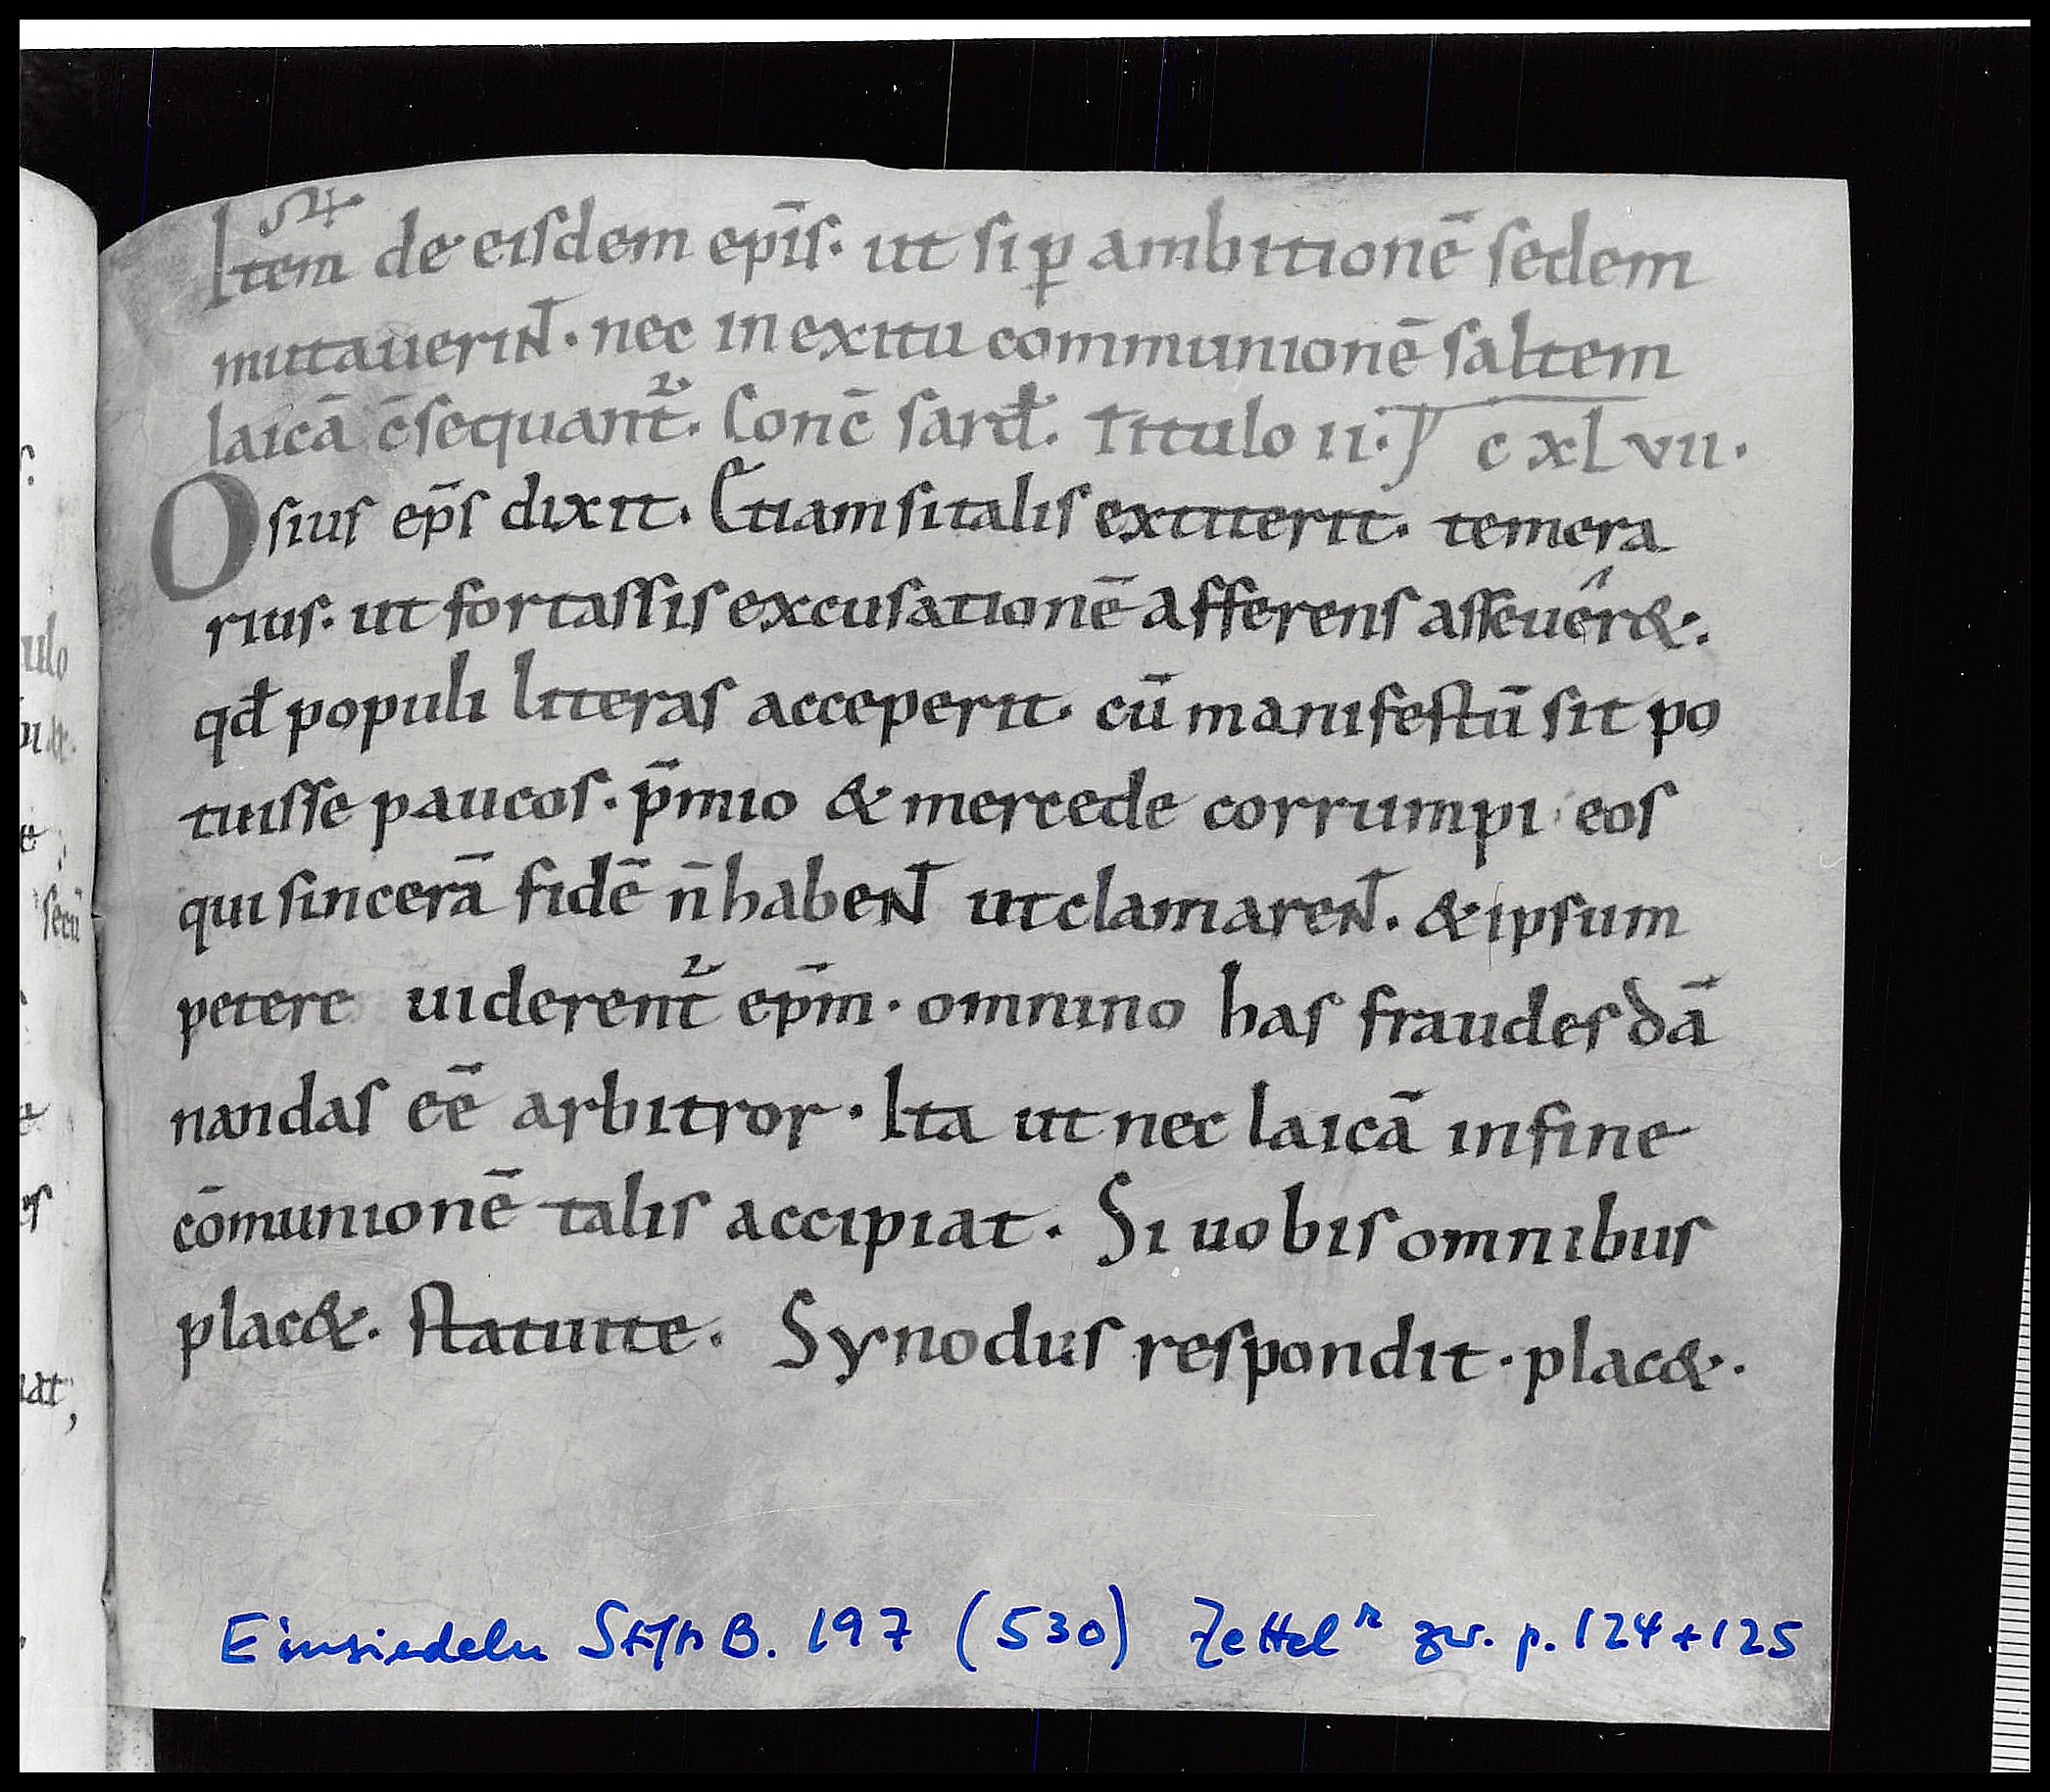 Item de eisdem ep̄is. ut si ꝑ ambitionē sedem
mutauerint̄. nec in exitu communionē saltem
laicā c̄sequant᷑. Conc̄ sard̄. Titulo ii. cxlvii.
Osius ep̄s dixit. Etiam si talis extiterit. temera
rius. ut fortassis excusationē afferens asseuêr&.
qd̄ populi literas acceperit. cū manifestū sit po
tuisse paucos. p̄mio & mercede corrumpi eos
qui sincerā fidē n̄ habent̄ ut clamarent̄. & ipsum
petere uiderent᷑ ep̄m. omnino has fraudes dā
nandas eē arbitror. Ita ut nec laicā in fine
cōmunionē talis accipiat. Si uobis omnibus
plac&. statuite. Synodus respondit. plac&.
Einsiedeln StiftsB. 197 (530) Zettel r zw. p. 124+125
ulo
secū